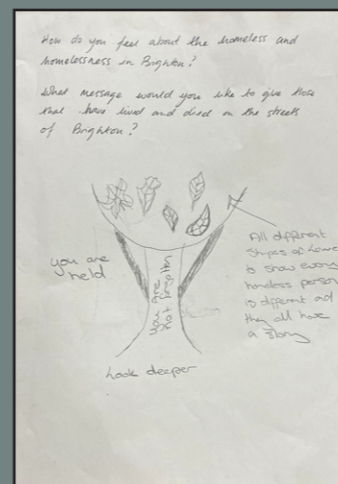 How do you feel about the homeless and
homelessness in Brighton?
What message would you like to give those
that have lived and died on the streets
of Brighton?
you are
held
You are
not forgotten
All different
shapes of
to show every
homeless person
is different and
they all have
a story
Look deeper